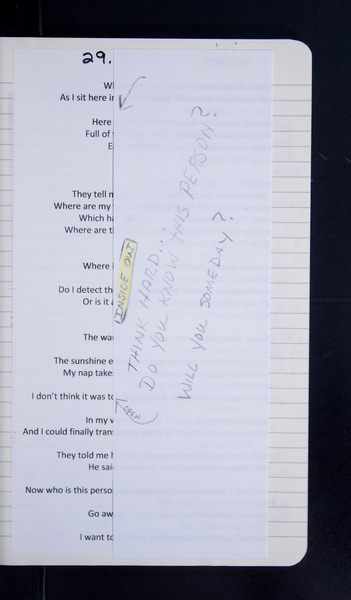 29.
As I sit here
Here
Full of
They tell
Where are my
Which
Where are
Where
Do I detect
Or is it
The
The sunshine
My nap
I don't think it was
In my
And I could finally
They told me
He
Now who is this
Go
I want
INSIDE OUT
THINK HARD...
DO YOU KNOW THIS PERSON?
WILL YOU SOMEDAY?
OPEN